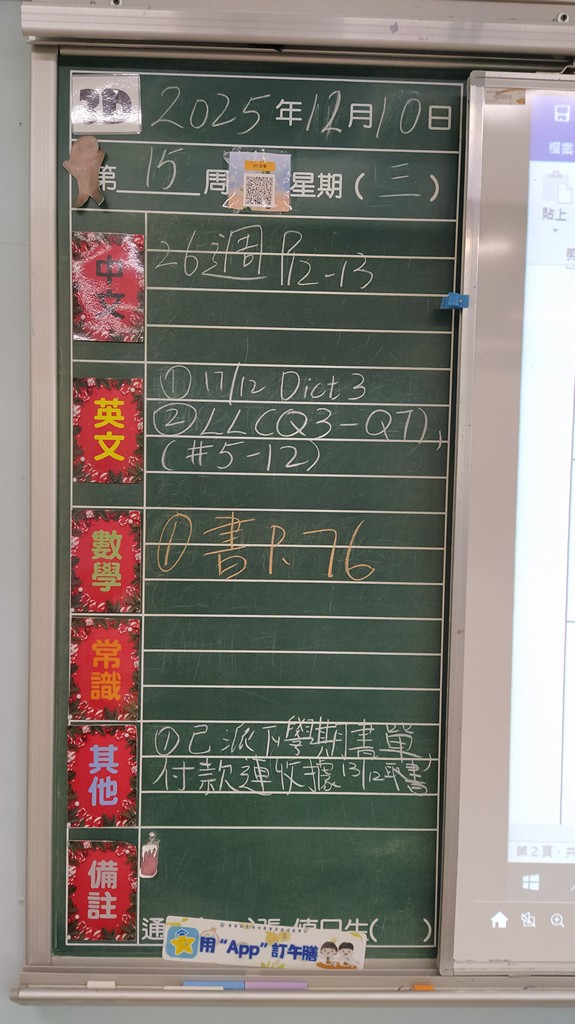 3D 2025年12月10日
第15周 星期(三)
中文
26週 P12-13
英文
① 17/12 Dict 3
② LL(Q3-Q7),
(#5-12)
數學
① 書P.76
常識
其他
① 已派下學期書單,
付款連收據13/12取書
備註
通
值日生( )
用“App”訂午膳
檔案
貼上
第2頁,共